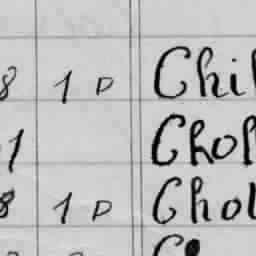 8 1 D Chi
1 Chol
8 1 D Chol